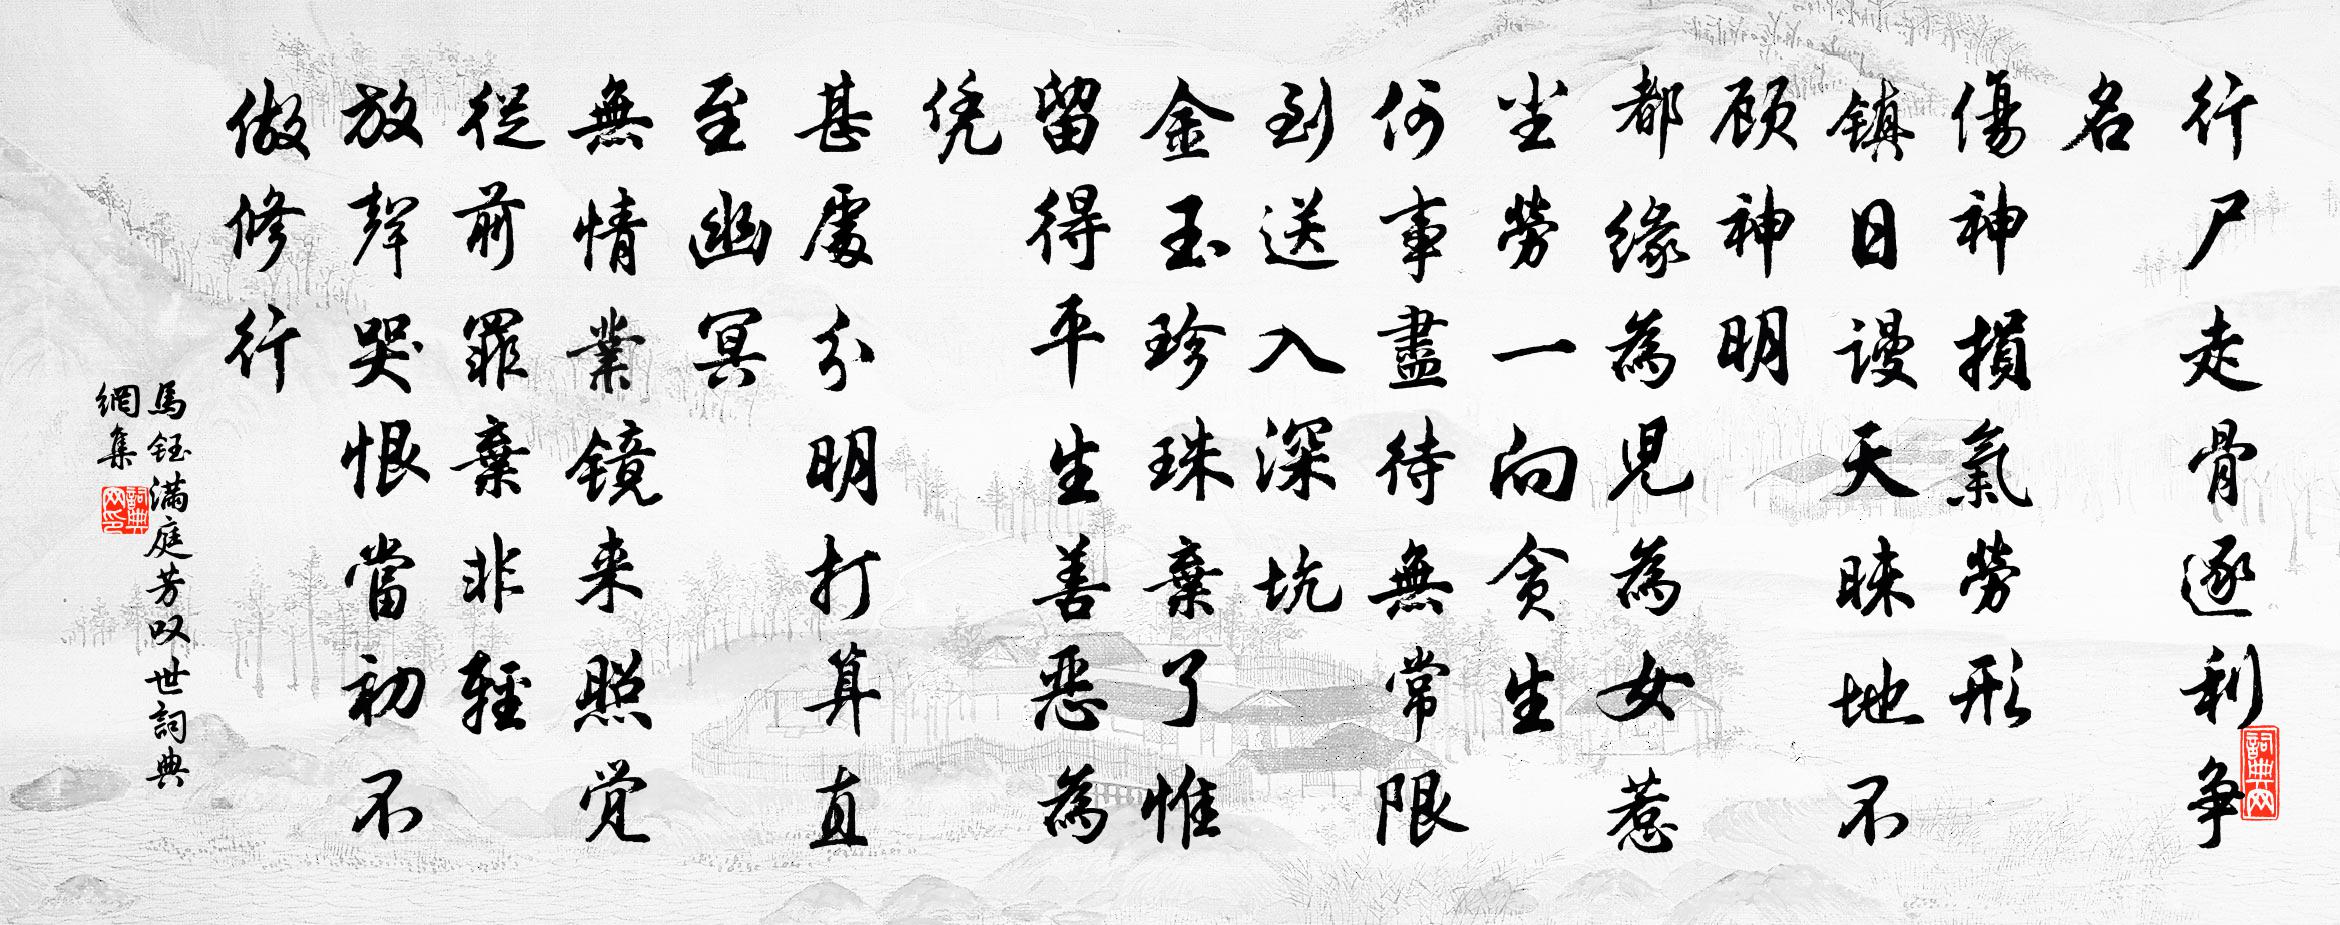 行尸走骨逐利争
名
傷神損氣劳形
镇日谩天昧地不
顾神明
都緣為児為女惹
尘劳一向贪生
何事盡待無常限
到送入深坑
金玉珍珠棄了惟
留得平生善恶為
凭
甚處分明打算直
至幽冥
無情業镜来照觉
従前罪棄非輕
放聲哭恨當初不
做修行
馬鈺满庭芳叹世詞典
網集
詞典网
詞典网印